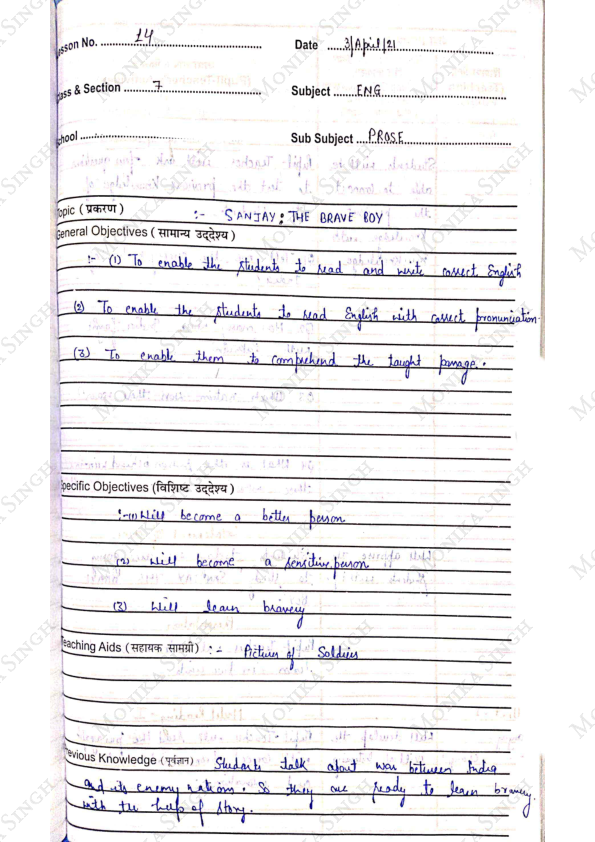 Lesson No. 14 Date 3/April/21
Class & Section 7 Subject ENG
School Sub Subject PROSE
Topic (प्रकरण) :- SANJAY: THE BRAVE BOY
General Objectives (सामान्य उद्देश्य)
:- (1) To enable the students to read and write correct English
(2) To enable the students to read English with correct pronunciation
(3) To enable them to comprehend the taught passage.
Specific Objectives (विशिष्ट उद्देश्य)
:-(1) Will become a better person
(2) Will become a sensitive person
(3) Will learn bravery
Teaching Aids (सहायक सामग्री) :- Picture of Soldiers
Previous Knowledge (पूर्वज्ञान) Students talk about war between India
and its enemy nations. So they are ready to learn bravery
with the help of story.
MONIKA SINGH